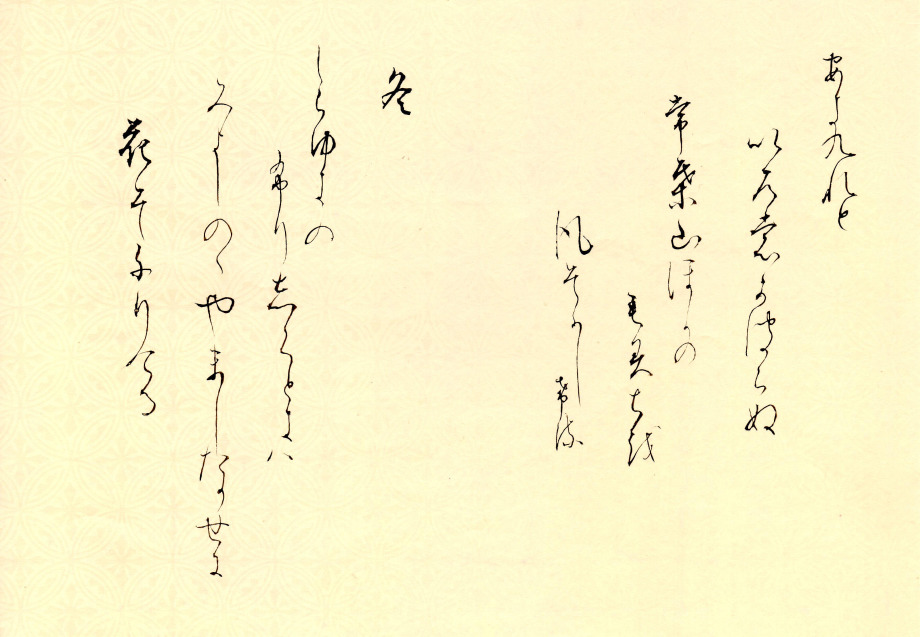 あきくれと
いろもかはらぬ
常葉山ほかの
もみちを
風そかしける
冬
しらゆきの
ふりしくときは
みよしのゝやましたかせに
花そちりける